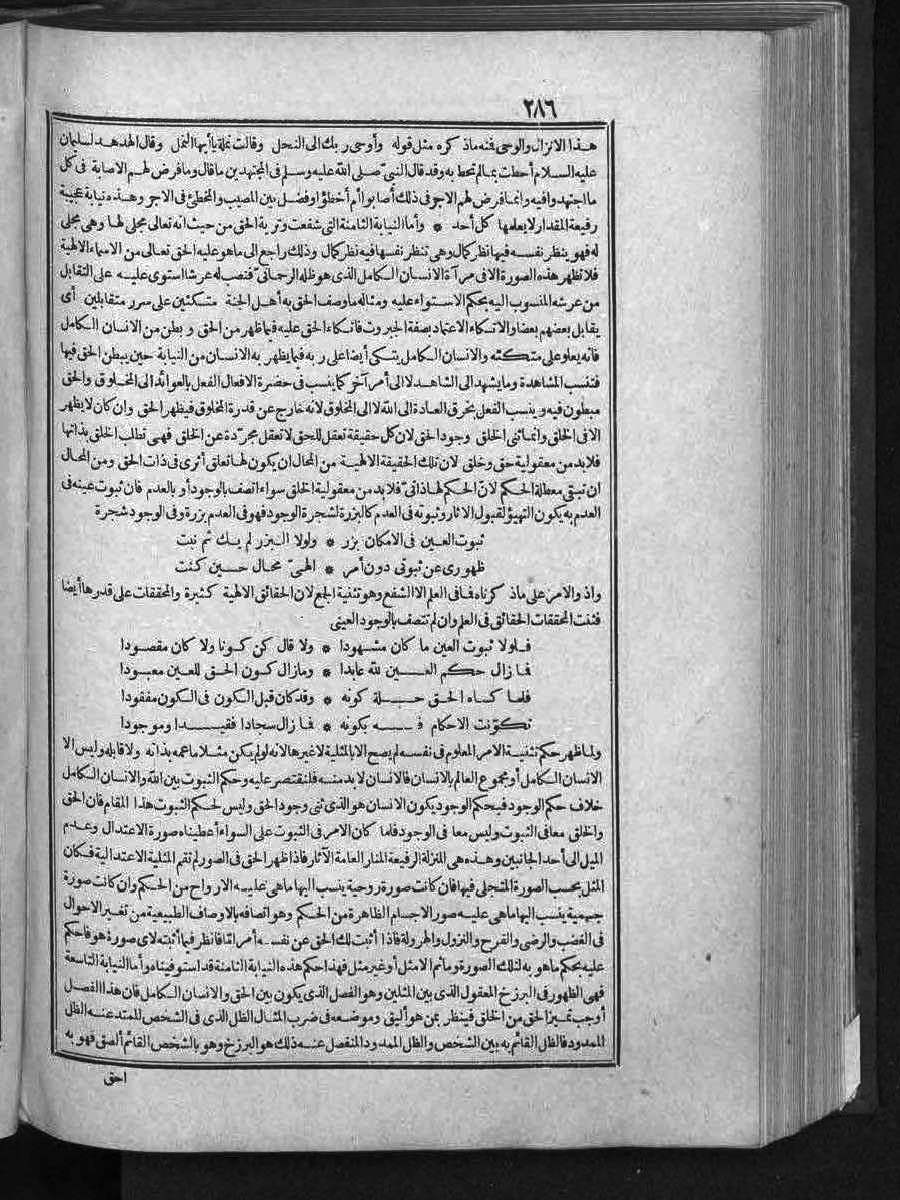 ٢٨٦
هذا الانزال والوحى فنه ماذكره مثل قوله وأوحى ربك الى النحل وقالت نملة ياأيها النمل وقال الهدهد لسليمان
عليه السلام أحطت بمالم تحط به وقد قال النبىّ صلى الله عليه وسلم فى المجتهدين ما قال وما فرض لهم الاصابة فى كل
ما اجتهدوا فيه وانما فرض لهم الاجر فى ذلك أصابوا أم أخطؤا وفضل بين المصيب والمخطئ فى الاجر وهذه نيابة عجيبة
رفيعة المقدار لا يعلمها كل أحد * وأما النيابة الثامنة التى شفعت وترية الحق من حيث انه تعالى مجلى لها وهى مجلى
له فهو ينظر نفسه فيها نظر كمال وهى تنظر نفسها فيه نظر كمال وذلك راجع الى ماهو عليه الحق تعالى من الاسماء الالهية
فلا تظهر هذه الصورة الا فى مرآة الانسان الكامل الذى هو ظله الرحمانىّ فنصب له عرشا استوى عليه على التقابل
من عرشه المنسوب اليه بحكم الاستواء عليه ومثاله ما وصف الحق به أهل الجنة متكئين على سرر متقابلين أى
يقابل بعضهم بعضا والاتكاء الاعتماد بصفة الجبروت فاتكاء الحق عليه فيما ظهر من الحق وبطن من الانسان الكامل
فانه يعلو على متكئه والانسان الكامل يتكى أيضا على ربه فيما يظهر به الانسان من النيابة حين يبطن الحق فيها
فتنسب المشاهدة وما يشهد الى الشاهد لا الى أمر آخر كما ينسب فى حضرة الافعال الفعل بالعوائد الى المخلوق والحق
مبطون فيه وينسب الفعل بخرق العادة الى الله لا الى المخلوق لانه خارج عن قدرة المخلوق فيظهر الحق وان كان لا يظهر
الا فى الخلق وانما ثنى الخلق وجود الحق لان كل حقيقة تعقل للحق لا تعقل مجرّدة عن الخلق فهى تطلب الخلق بذاتها
فلا بد من معقولية حق وخلق لان تلك الحقيقة الالهية من المحال ان يكون لها تعلق أثرى فى ذات الحق ومن المحال
ان تبقى معطلة الحكم لانّ الحكم لها ذاتىّ فلا بد من معقولية الخلق سواء اتصف بالوجود أو بالعدم فان ثبوت عينه فى
العدم به يكون التهيؤ لقبول الاثار وثبوته فى العدم كالبزرة لشجرة الوجود فهو فى العدم بزرة وفى الوجود شجرة
ثبوت العين فى الامكان بزر * ولولا البزر لم يك ثم نبت
ظهورى عن ثبوتى دون أمر * الهىّ محال حسين كنت
واذ والامر على ما ذكرناه فما فى العلم الا الشفع وهو تثنية الجمع لان الحقائق الالهية كثيرة والمحققات على قدرها أيضا
فثنت المحققات الحقائق فى العلم وان لم تتصف بالوجود العينى
فلولا ثبوت العين ما كان مشهودا * ولا قال كن كونا ولا كان مقصودا
فمازال حكم العين لله عابدا * ومازال كون الحق للعين معبودا
فلما كساه الحق حلة كونه * وقد كان قبل الكون فى الكون مفقودا
تكوّنت الاحكام فيه بكونه * فمازال سجادا فقيدا وموجودا
ولما ظهر حكم تثنية الامر المعلوم فى نفسه لم يصح الا بالمثلية لا غيرها لانه لو لم يكن مثلا ما عمه بذاته ولا قابله وليس الا
الانسان الكامل أو مجموع العالم بالانسان فالانسان لا بد منه فلنقتصر عليه وحكم الثبوت بين الله والانسان الكامل
خلاف حكم الوجود فبحكم الوجود يكون الانسان هو الذى ثنى وجود الحق وليس لحكم الثبوت هذا المقام فان الحق
والخلق معا فى الثبوت وليس معا فى الوجود فلما كان الامر فى الثبوت على السواء أعطيناه صورة الاعتدال وعدم
الميل الى أحد الجانبين وهذه هى المنزلة الرفيعة المنار العامة الآثار فاذا ظهر الحق فى الصور لم تقم المثلية الاعتدالية فكان
المثل بحسب الصورة المتجلى فيها فان كانت صورة روحية ينسب اليها ماهى عليه الارواح من الحكم وان كانت صورة
جسمية ينسب اليها ماهى عليه صور الاجسام الظاهرة من الحكم وهو اتصافه بالاوصاف الطبيعية من تغير الاحوال
فى الغضب والرضى والفرح والنزول والهرولة فاذا أثبت لك الحق عن نفسه أمرا مّا فانظر فيما أثبته لاى صورة هو فاحكم
عليه بحكم ماهو به لتلك الصورة وما ثم الا مثل أو غير مثل فهذا حكم هذه النيابة الثامنة قد استوفيناه وأما النيابة التاسعة
فهى الظهور فى البرزخ المعقول الذى بين المثلين وهو الفصل الذى يكون بين الحق والانسان الكامل فان هذا الفصل
أوجب تميز الحق من الخلق فينظر بمن هو أليق وموضعه فى ضرب المثال الظل الذى فى الشخص الممتد عنه الظل
الممدود فالظل القائم به بين الشخص والظل الممدود المنفصل عنه ذلك هو البرزخ وهو بالشخص القائم ألصق فهو به
احق